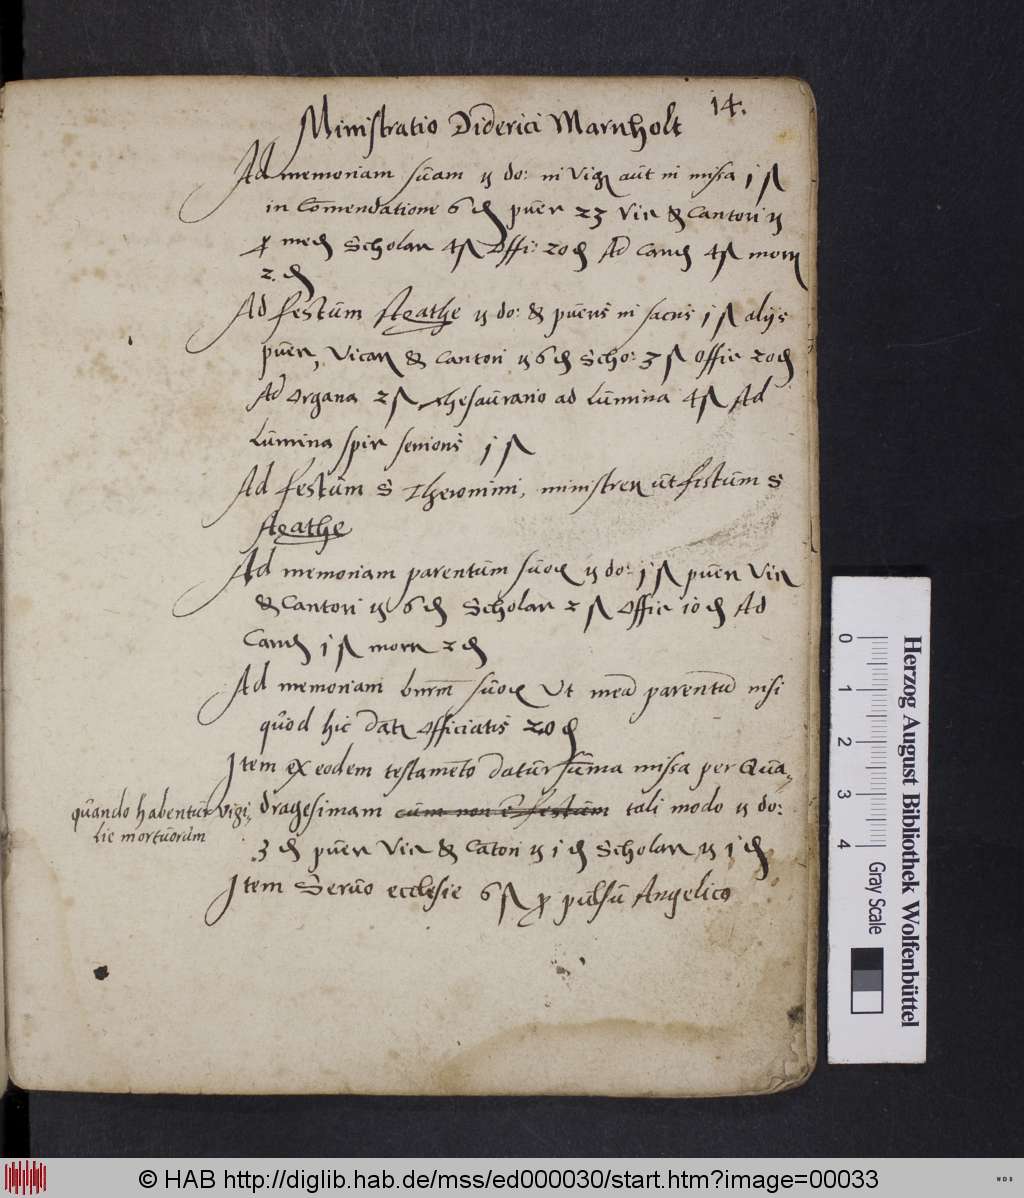 14.
Ministratio Diderici Marnholt
Ad memoriam suam ij do: in Vig aut in missa j ß
in Comendatione 6 d puer 23 Vic & Cantori ij
Scholar 4 ß Offi: 20 d Ad Cand 4 ß morn
2 d
Ad festum Agathe ij do: & pueris in sacris j ß alijs
puer, Vicar & Cantori ij 6 d Scho: 3 ß Offic 20 d
Ad Organa 2 ß Thesaurario ad Lumina 4 ß Ad
Lumina senioris j ß
Ad festum S Iheronimi, ministren ut festum S
Agathe
Ad memoriam parentum suor ij do: j ß puer Vic
& Cantori ij 6 d Scholar 2 ß Offic 10 d Ad
Cand j ß morn 2 d
Ad memoriam suor Vt parentu nisi
quod hic dat Officiatis 20 d
Item ex eodem testamento datur suma missa per Qua,
quando habentur Vigi, dragesimam cum non e festum tali modo ij do:
lie mortuorum
3 d puer Vic & Catori ij j d Scholar ij j d
Item Seruo ecclesie 6 ß p pulsu Angelico
Herzog August Bibliothek Wolfenbüttel
0 1 2 3 4
Gray Scale
© HAB http://diglib.hab.de/mss/ed000030/start.htm?image=00033